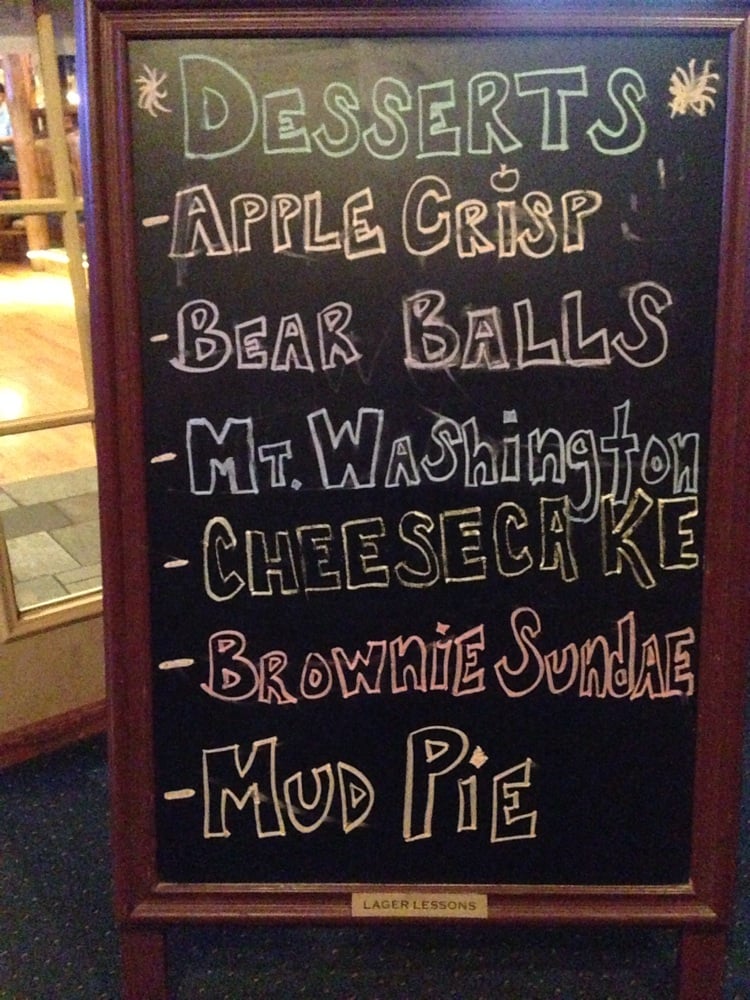 DESSERTS
- APPLE CRISP
- BEAR BALLS
- MT. WAShington
- CHEESECAKE
- BROWNiE SundAE
- MUD PiE
LAGER LESSONS